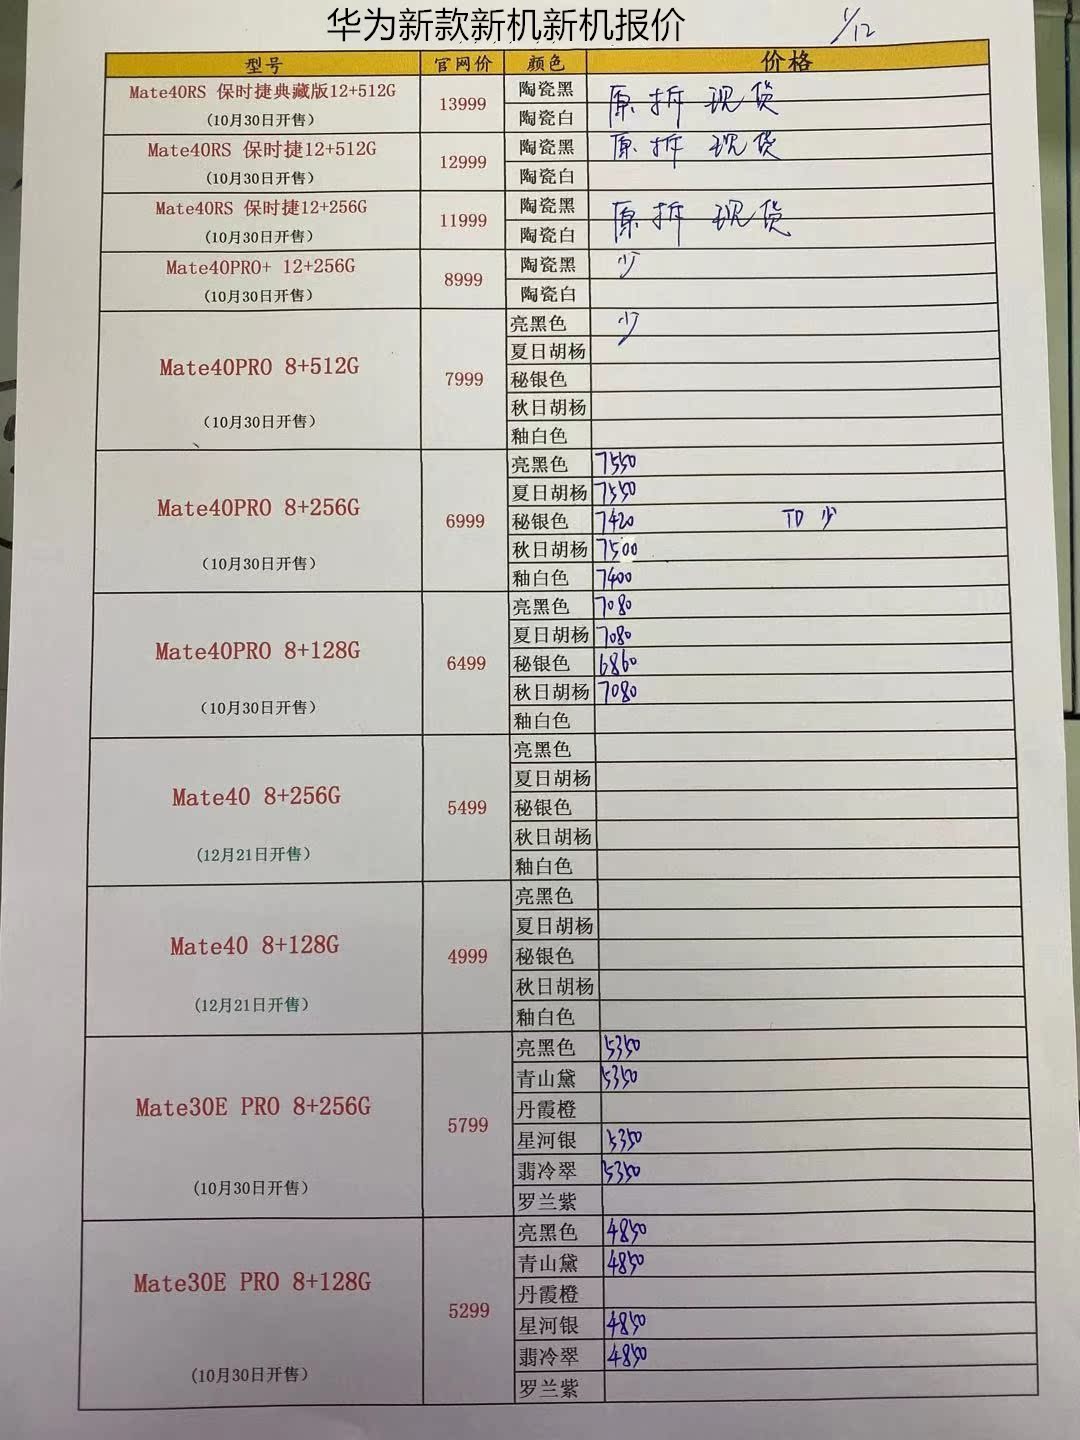 华为新款新机新机报价
1/12
型号 官网价 颜色 价格
Mate40RS 保时捷典藏版12+512G 13999 陶瓷黑 原拆 现货
(10月30日开售) 陶瓷白
Mate40RS 保时捷12+512G 12999 陶瓷黑 原拆 现货
(10月30日开售) 陶瓷白
Mate40RS 保时捷12+256G 11999 陶瓷黑 原拆 现货
(10月30日开售) 陶瓷白
Mate40PRO+ 12+256G 8999 陶瓷黑 少
(10月30日开售) 陶瓷白
亮黑色 少
夏日胡杨
Mate40PRO 8+512G 7999 秘银色
(10月30日开售) 秋日胡杨
釉白色
亮黑色 7550
夏日胡杨 7550
Mate40PRO 8+256G 6999 秘银色 7420 TD 少
(10月30日开售) 秋日胡杨 7500
釉白色 7400
亮黑色 7080
夏日胡杨 7080
Mate40PRO 8+128G 6499 秘银色 6860
(10月30日开售) 秋日胡杨 7080
釉白色
亮黑色
夏日胡杨
Mate40 8+256G 5499 秘银色
(12月21日开售) 秋日胡杨
釉白色
亮黑色
夏日胡杨
Mate40 8+128G 4999 秘银色
(12月21日开售) 秋日胡杨
釉白色
亮黑色 5350
青山黛 5350
Mate30E PRO 8+256G 5799 丹霞橙
星河银 5350
(10月30日开售) 翡冷翠 5350
罗兰紫
亮黑色 4850
青山黛 4850
Mate30E PRO 8+128G 5299 丹霞橙
星河银 4850
(10月30日开售) 翡冷翠 4850
罗兰紫